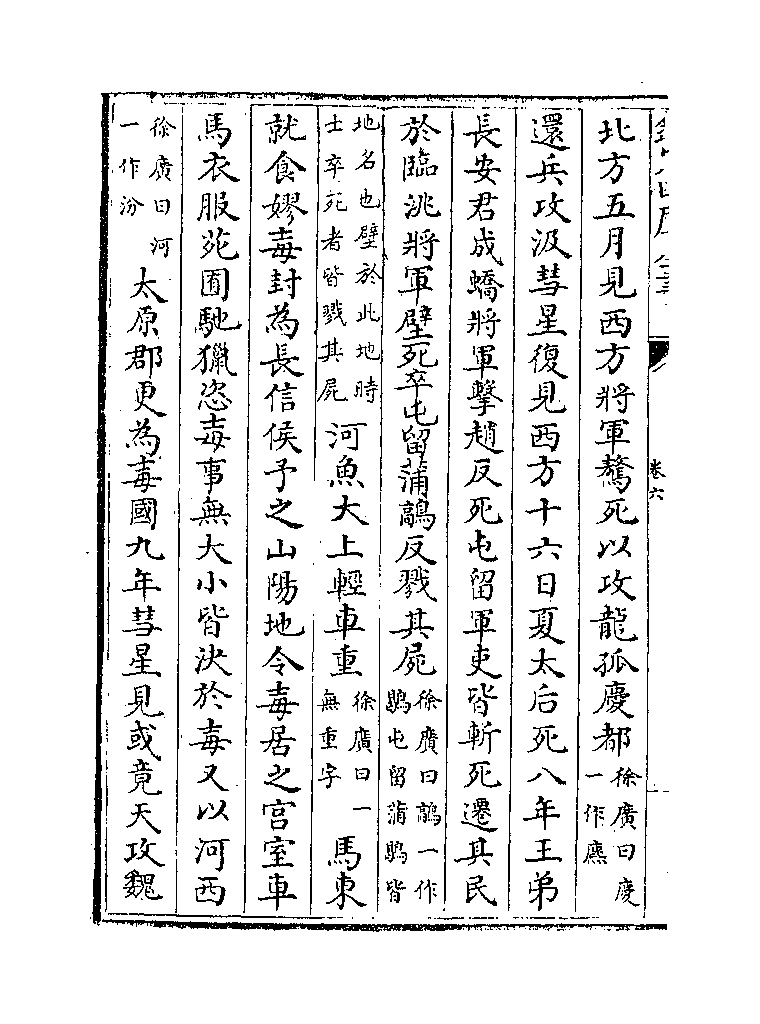 卷六
北方五月見西方將軍驁死以攻龍孤慶都徐廣曰慶一作麃
還兵攻汲彗星復見西方十六日夏太后死八年王弟
長安君成蟜將軍擊趙反死屯留軍吏皆斬死遷其民
於臨洮將軍壁死卒屯留蒲鶮反戮其屍徐廣曰鶮一作鶪屯留蒲鶪皆
地名也壁於此地時士卒死者皆戮其屍河魚大上輕車重徐廣曰一無重字馬東
就食嫪毐封為長信侯予之山陽地令毐居之宫室車
馬衣服苑囿馳獵恣毐事無大小皆決於毐又以河西
徐廣曰河一作汾太原郡更為毐國九年彗星見或竟天攻魏